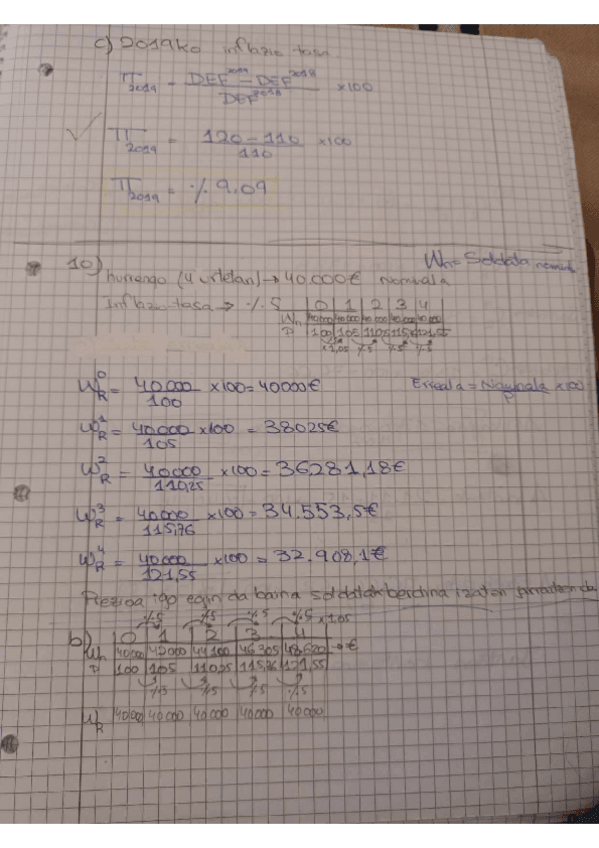 c) 2019ko inflazio tasa
π2019 = DEF2019 − DEF2018 / DEF2018 x100
π2019 = 120 − 110 / 110 x100
π2019 = %9,09
Wn = Soldata nominala
10) hurrengo (4 urtetan) → 40.000€ nominala
Inflazio tasa → %5
0 1 2 3 4
Wn 40.000 40.000 40.000 40.000 40.000
P 100 105 110,25 115,76 121,55
x1,05 %5 %5 %5
W⁰R = 40000 / 100 x100 = 40000€
Erreala = Nominala / P x100
W¹R = 40000 / 105 x100 = 38025€
W²R = 40000 / 110,25 x100 = 36281,18€
W³R = 40000 / 115,76 x100 = 34.553,5€
W⁴R = 40000 / 121,55 x100 = 32.908,1€
Prezioa igo egin da baina soldatak berdina izaten jarraitzen du
%5 %5 %5 %5 x1,05
b) 0 1 2 3 4
Wn 40000 42000 44100 46305 48620 → €
P 100 105 110,25 115,76 121,55
%5 %5 %5 %5
WR 40000 40000 40000 40000 40000